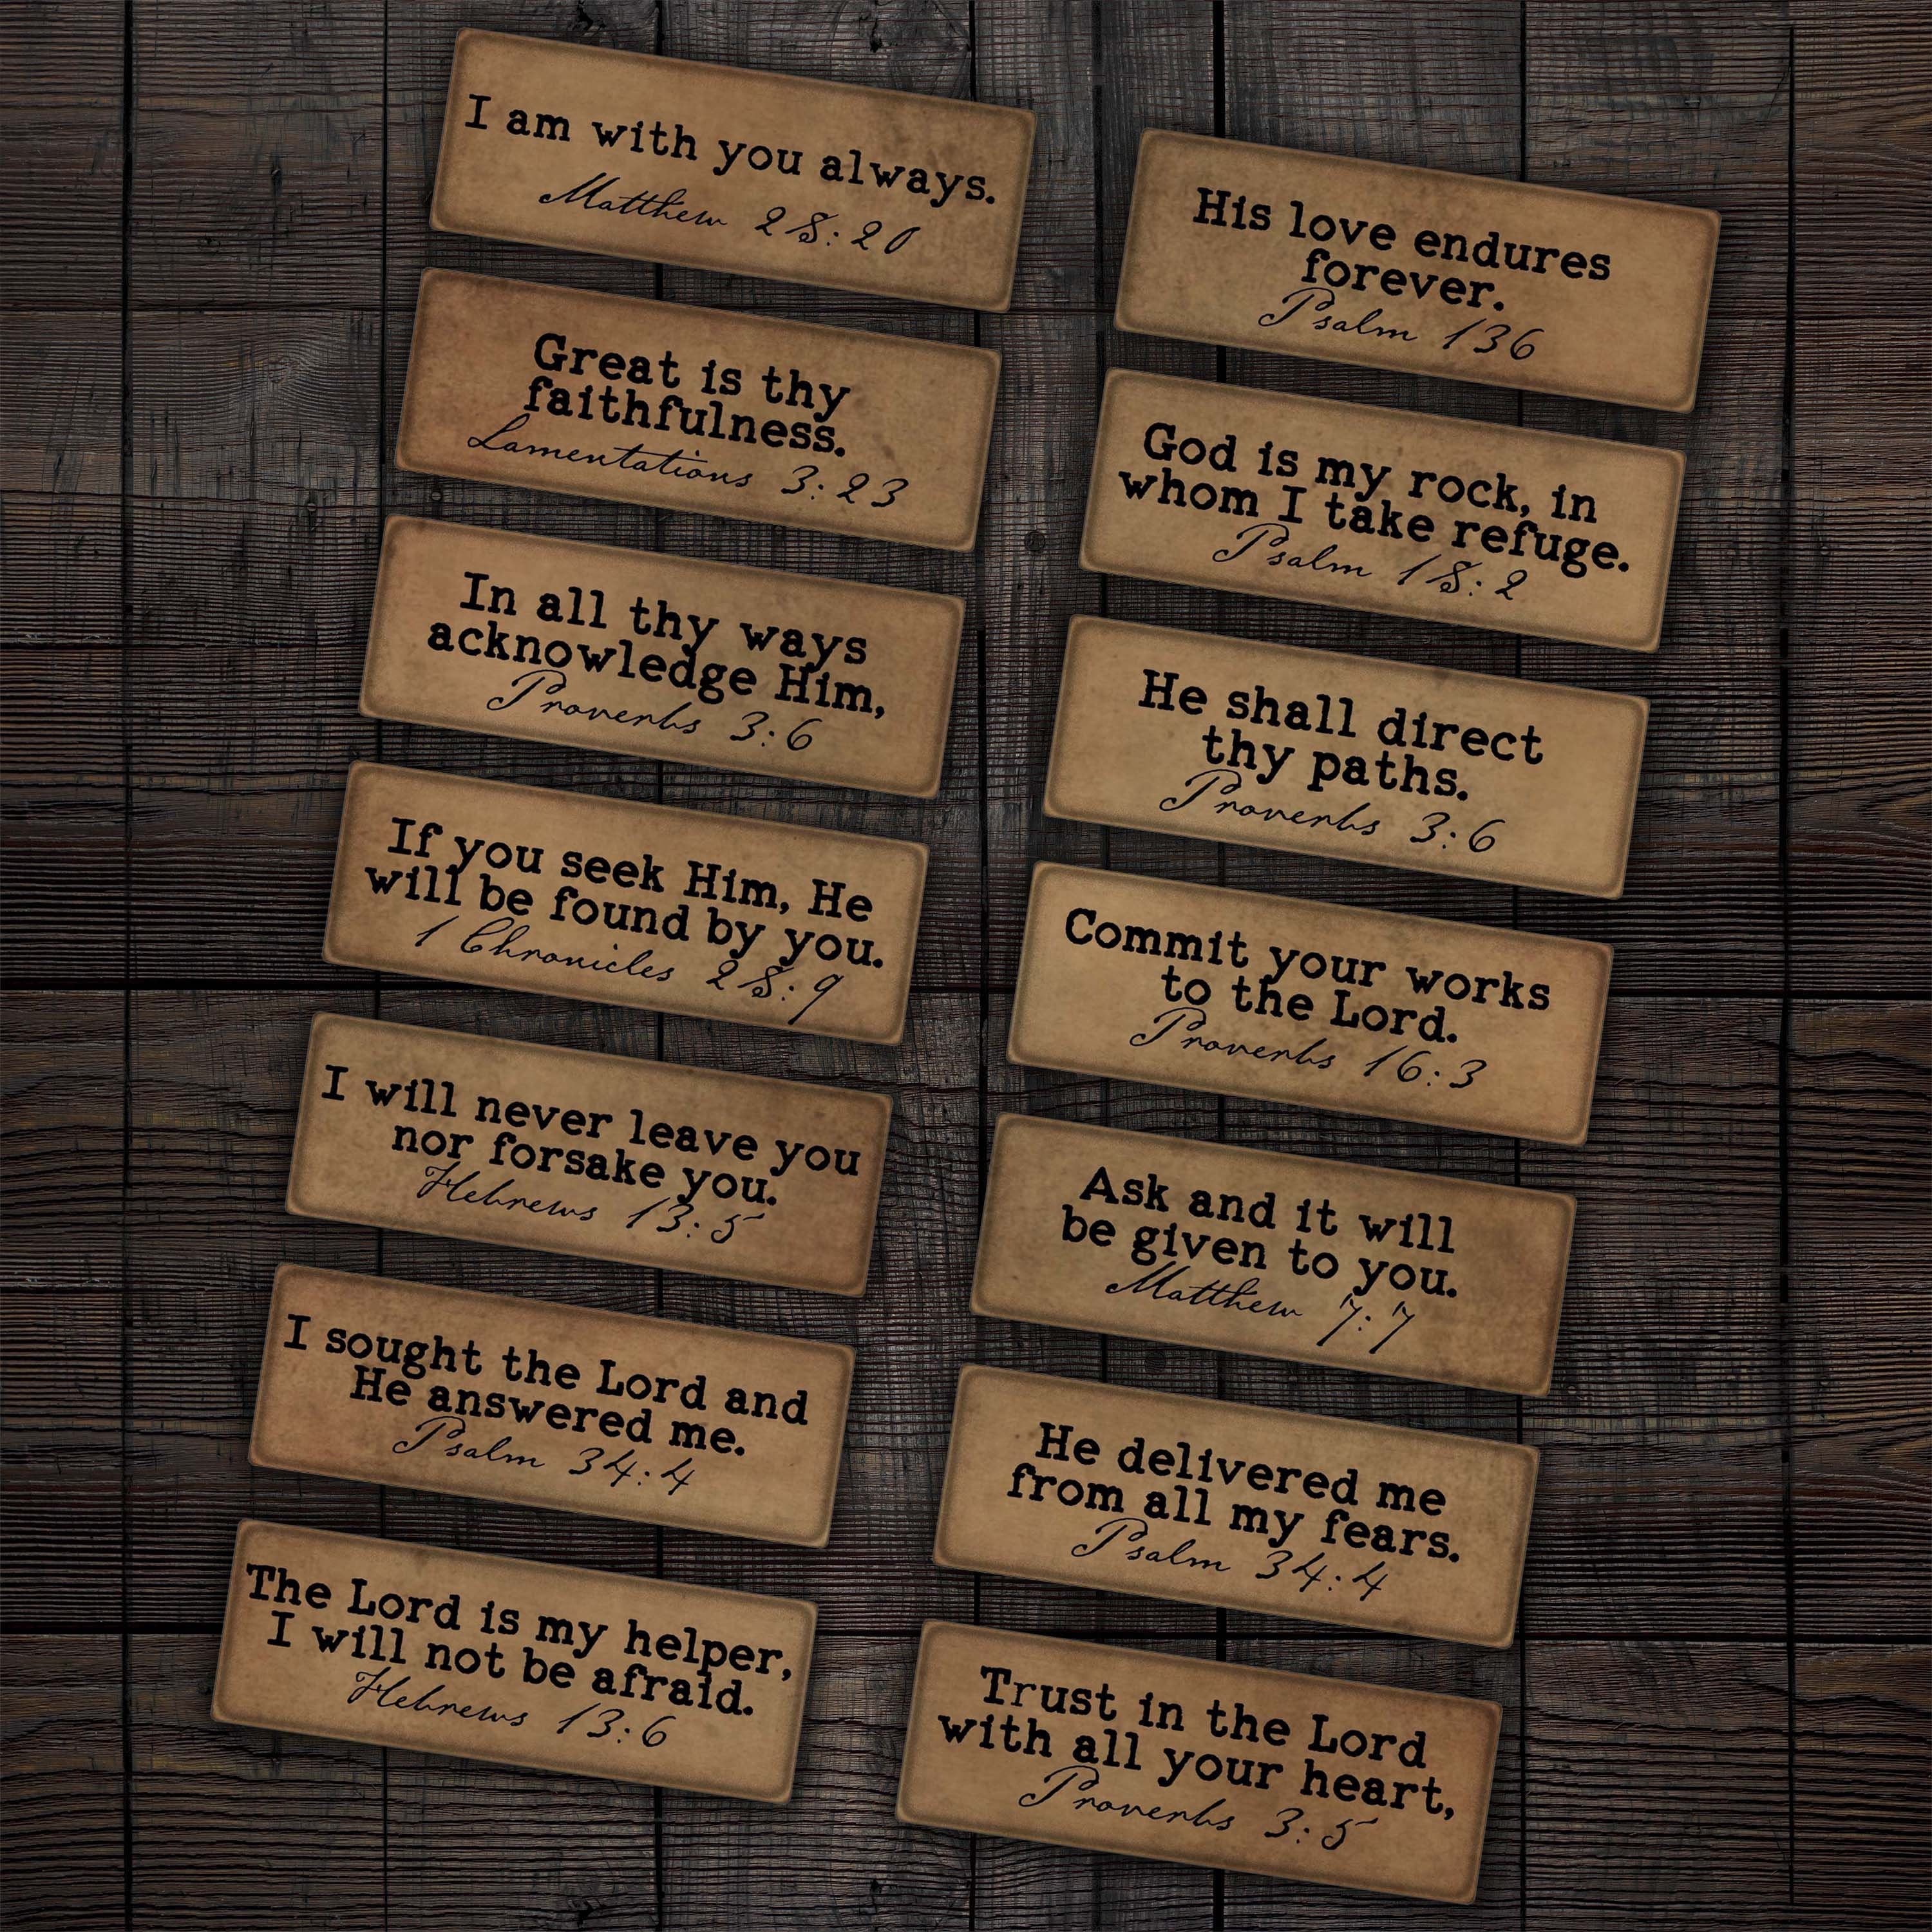 I am with you always.
Matthew 28:20
Great is thy
faithfulness.
Lamentations 3:23
In all thy ways
acknowledge Him,
Proverbs 3:6
If you seek Him, He
will be found by you.
1 Chronicles 28:9
I will never leave you
nor forsake you.
Hebrews 13:5
I sought the Lord and
He answered me.
Psalm 34:4
The Lord is my helper,
I will not be afraid.
Hebrews 13:6
His love endures
forever.
Psalm 136
God is my rock, in
whom I take refuge.
Psalm 18:2
He shall direct
thy paths.
Proverbs 3:6
Commit your works
to the Lord.
Proverbs 16:3
Ask and it will
be given to you.
Matthew 7:7
He delivered me
from all my fears.
Psalm 34:4
Trust in the Lord
with all your heart,
Proverbs 3:5